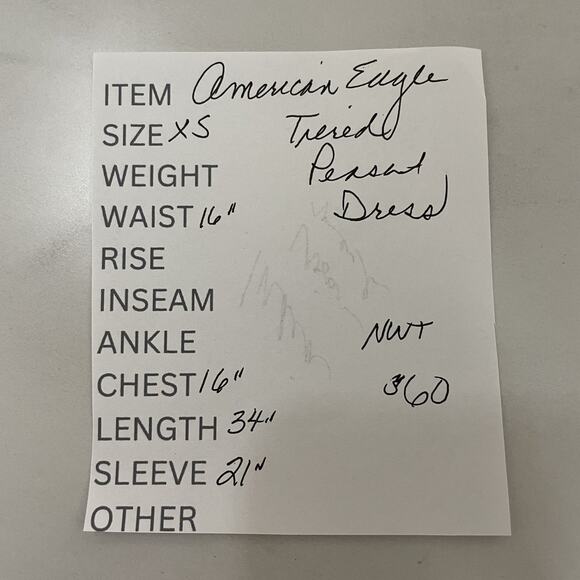 ITEM American Eagle
SIZE XS Tiered
WEIGHT Peasant
WAIST 16" Dress
RISE
INSEAM
ANKLE NWT
CHEST 16" $60
LENGTH 34"
SLEEVE 21"
OTHER